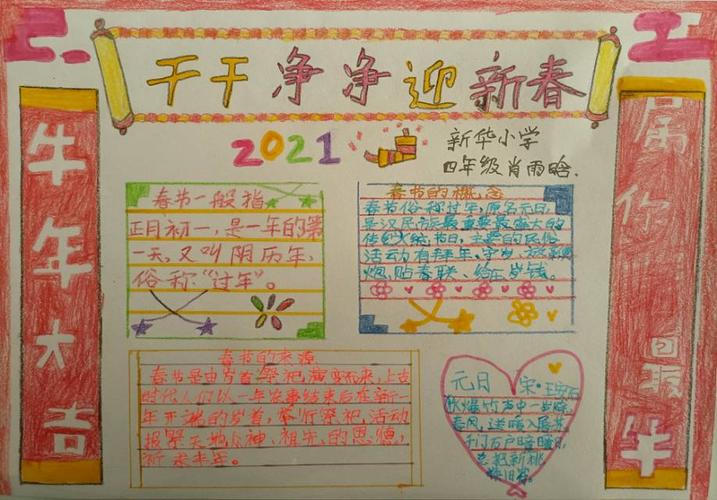 干干净净迎新春
2021
新华小学
四年级肖雨晗.
牛年大吉
属你
牛
春节一般指
正月初一,是一年的第
一天,又叫阴历年,
俗称“过年”。
春节的概念
春节俗称过年,原名元旦,
是汉民族最重要最盛大的
传统节日,主要的民俗
活动有拜年、守岁、放鞭
炮,贴春联、给压岁钱。
春节的来源
春节是由岁首祭祀演变而来,上古
时代人们以一年农事结束后在新一
年开端的岁首,举行祭祀活动
报祭天地众神、祖先的恩德,
祈求丰年。
元日 宋·王安石
爆竹声中一岁除
春风送暖入屠苏
千门万户曈曈日
总把新桃
换旧符